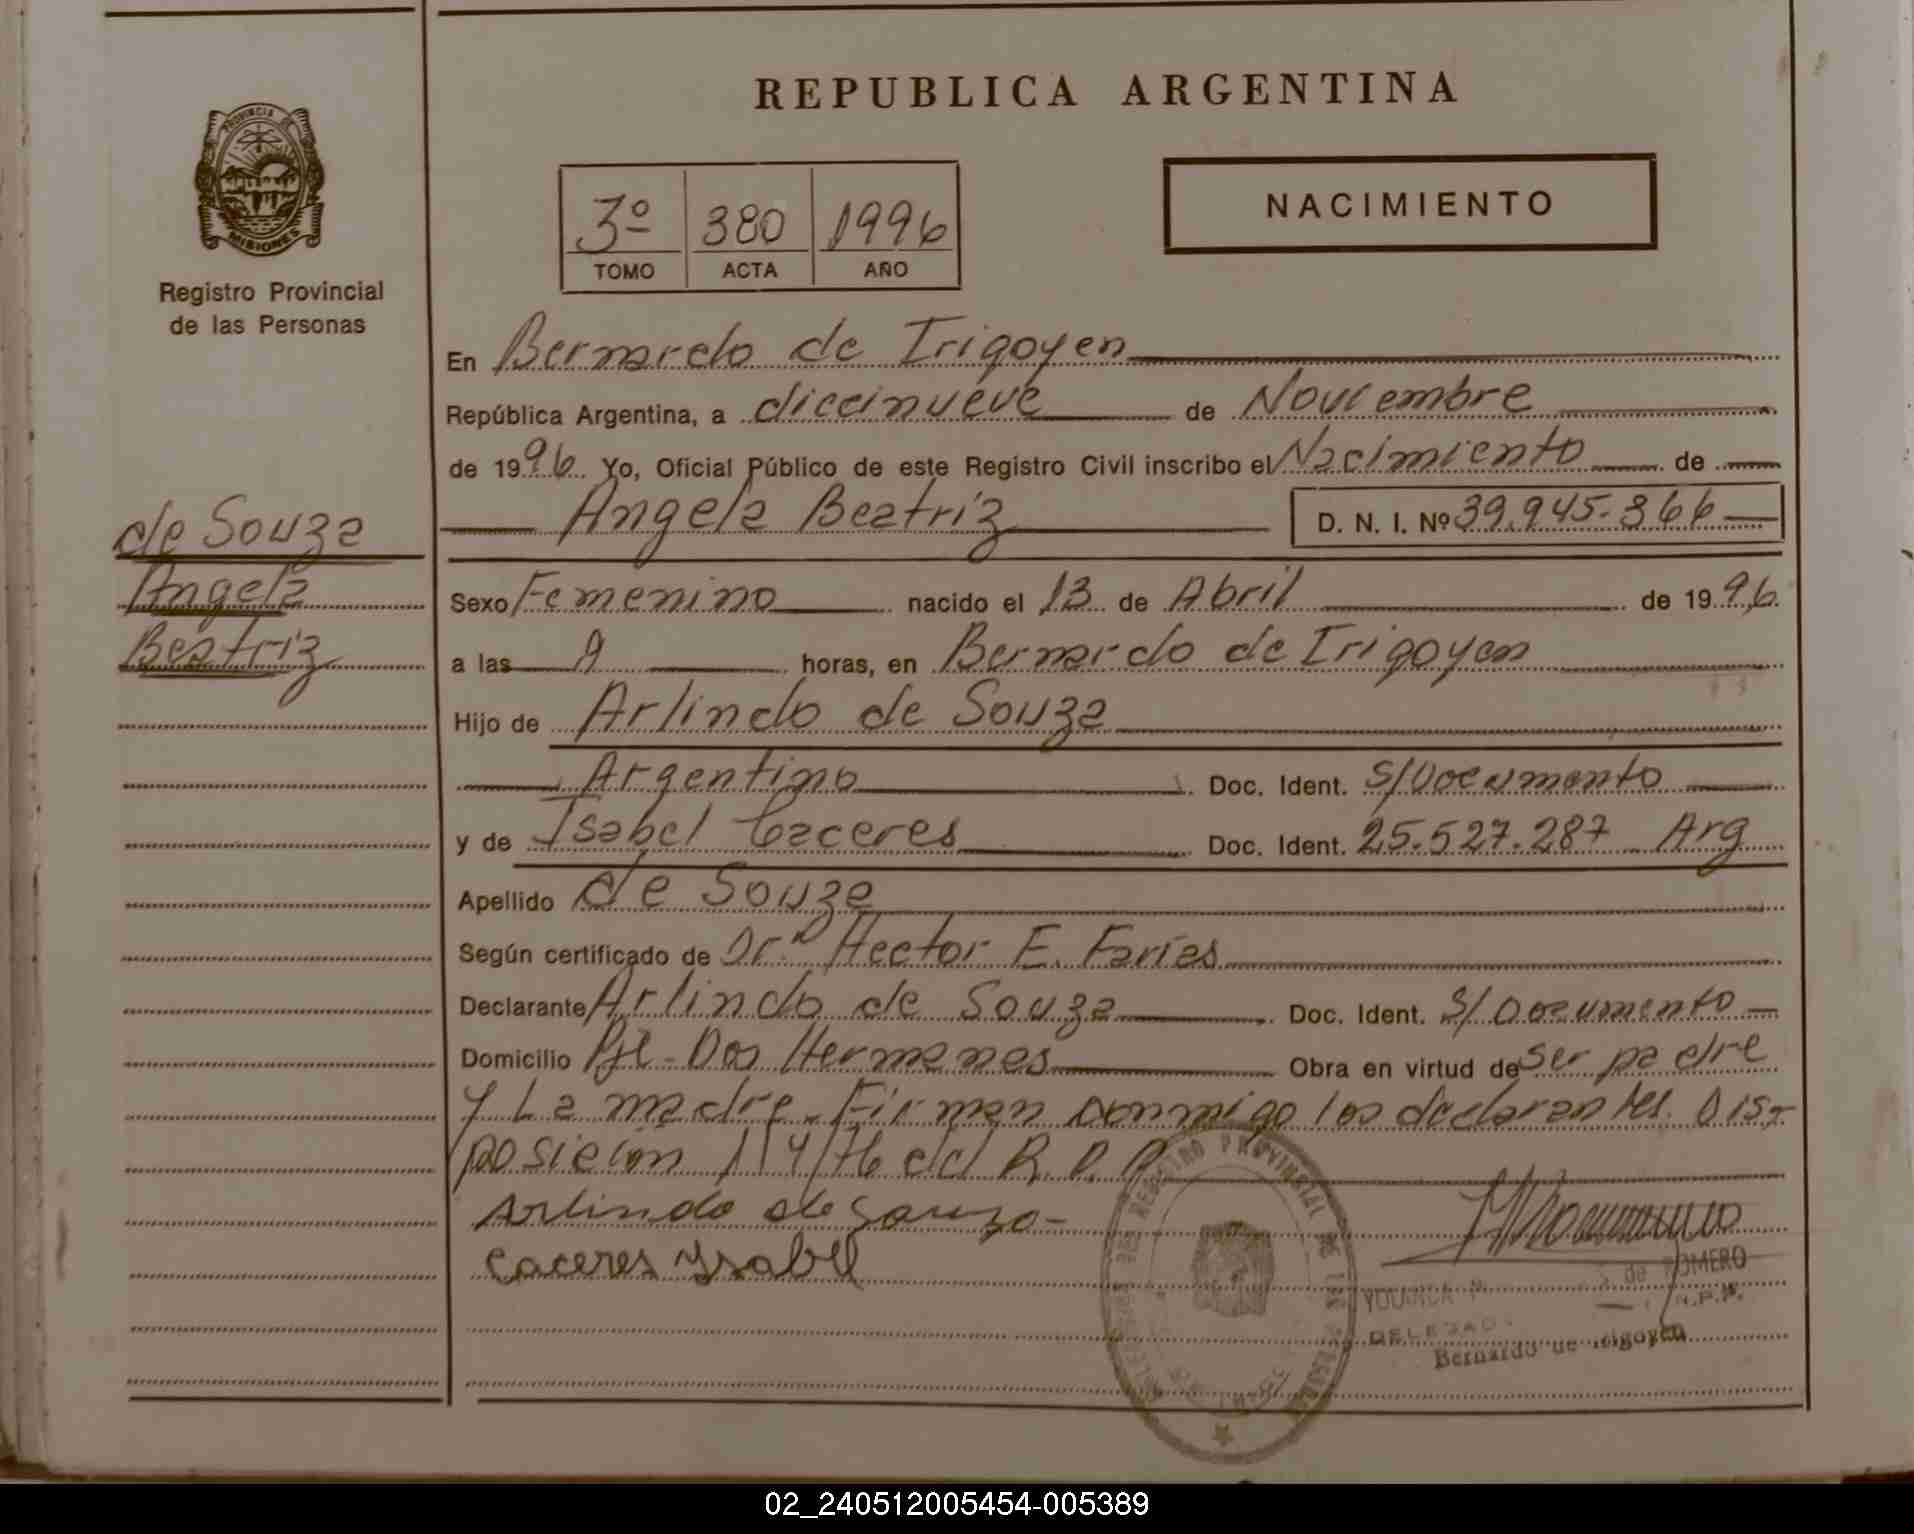 REPUBLICA ARGENTINA
PROVINCIA DE
MISIONES
Registro Provincial
de las Personas
3º 380 1996
TOMO ACTA AÑO
NACIMIENTO
En Bernardo de Irigoyen
República Argentina, a diecinueve de Noviembre
de 1996 Yo, Oficial Público de este Registro Civil inscribo el Nacimiento de
Angela Beatriz D. N. I. Nº 39.945.366
de Souza
Angela
Beatriz
Sexo Femenino nacido el 13 de Abril de 1996
a las 9 horas, en Bernardo de Irigoyen
Hijo de Arlindo de Souza
Argentino Doc. Ident. S/Documento
y de Isabel Caceres Doc. Ident. 25.527.287 Arg
Apellido de Souza
Según certificado de Dr. Hector E. Farías
Declarante Arlindo de Souza Doc. Ident. S/Documento
Domicilio Pje - Dos Hermanas Obra en virtud de ser padre
y La madre. Firman conmigo los declarantes. Dis-
posición 114/76 del R.P.P.
Arlindo de Souza
Caceres Ysabel
de ROMERO
Bernardo de Irigoyen
02_240512005454-005389